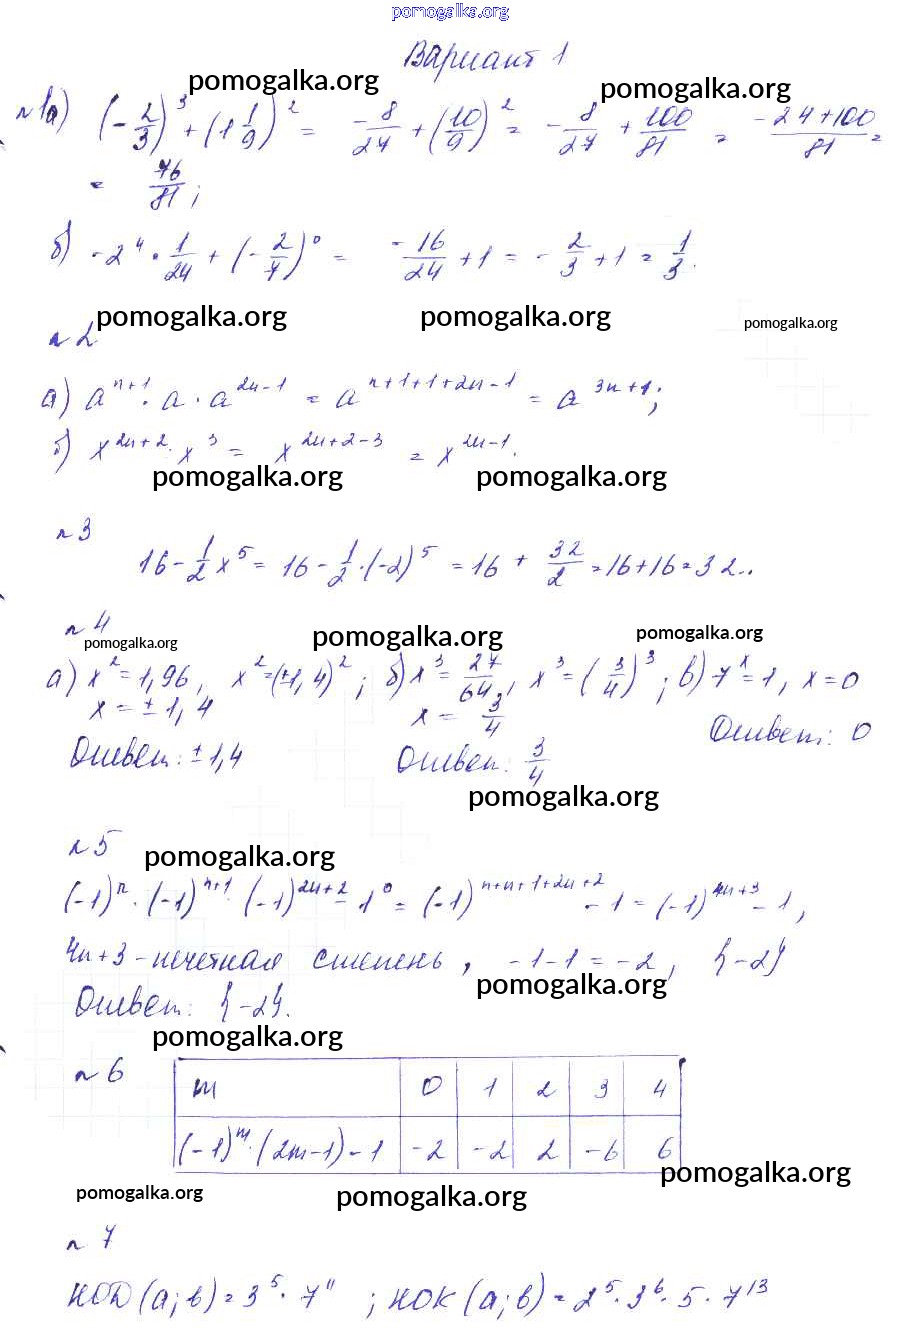 pomogalka.org
Вариант 1
pomogalka.org pomogalka.org
№1а) (-2/3)³ + (1 1/9)² = -8/27 + (10/9)² = -8/27 + 100/81 = (-24+100)/81 =
= 76/81;
б) -2⁴ · 1/24 + (-2/7)⁰ = -16/24 + 1 = -2/3 + 1 = 1/3.
pomogalka.org pomogalka.org pomogalka.org
№2
а) a^(n+1) · a · a^(2n-1) = a^(n+1+1+2n-1) = a^(3n+1);
б) x^(2n+2) · x³ = x^(2n+2-3) = x^(2n-1).
pomogalka.org pomogalka.org
№3
16 - 1/2 x⁵ = 16 - 1/2 · (-2)⁵ = 16 + 32/2 = 16 + 16 = 32..
№4
pomogalka.org pomogalka.org pomogalka.org
а) x² = 1,96, x² = (±1,4)²; б) x³ = 27/64, x³ = (3/4)³; в) 7^x = 1, x = 0
x = ±1,4 x = 3/4
Ответ: ±1,4 Ответ: 3/4 Ответ: 0
pomogalka.org
№5
pomogalka.org
(-1)^n · (-1)^(n+1) · (-1)^(2n+2) - 1⁰ = (-1)^(n+n+1+2n+2) - 1 = (-1)^(4n+3) - 1,
4n+3 - нечетная степень, -1-1 = -2, {-2}
pomogalka.org
Ответ: {-2}.
pomogalka.org
№6
m 0 1 2 3 4
(-1)^m · (2m-1) - 1 -2 -2 2 -6 6
pomogalka.org pomogalka.org pomogalka.org
№7
НОД (a; b) = 3⁵ · 7¹¹; НОК (a; b) = 2⁵ · 3⁶ · 5 · 7¹³